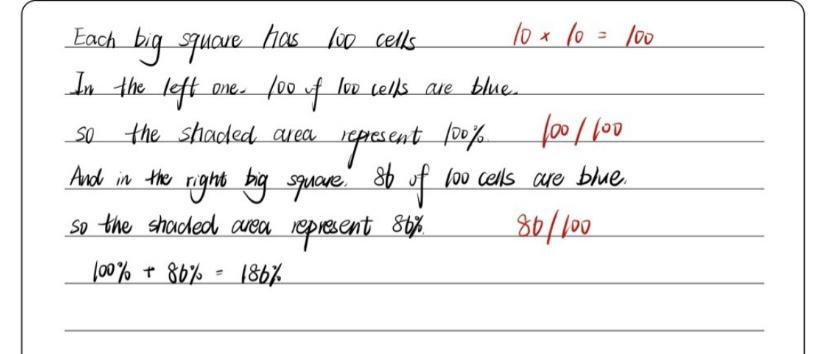 Each big square has 100 cells 10 × 10 = 100
In the left one. 100 of 100 cells are blue.
so the shaded area represent 100%. 100/100
And in the right big square. 86 of 100 cells are blue.
so the shaded area represent 86%. 86/100
100% + 86% = 186%